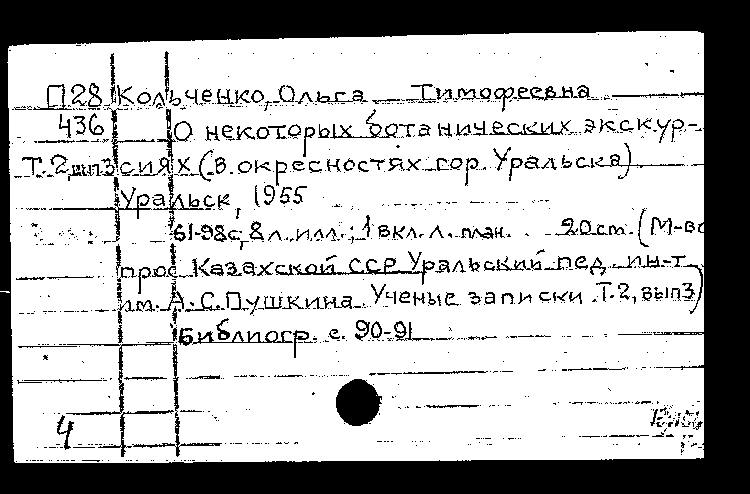 П28 Кольченко, Ольга Тимофеевна
436 О некоторых ботанических экскур-
Т.2, вып3 сиях (в окресностях гор. Уральска).
Уральск, 1955
61-98с, 8 л. илл.; 1 вкл. л. план. 20 cm. (М-во
прос Казахской ССР Уральский пед. ин-т
им. А.С.Пушкина. Ученые записки. Т.2, вып3)
Библиогр. с. 90-91
4